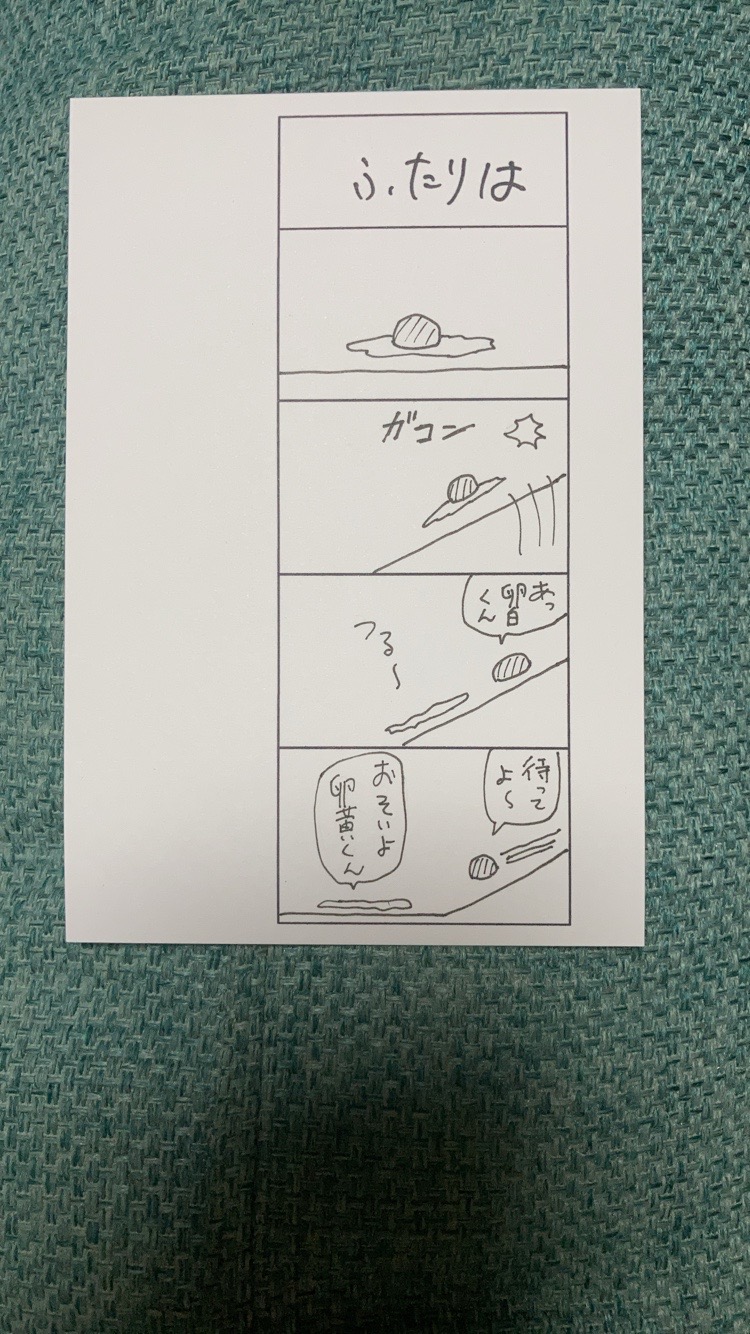 ふたりは
ガコン
あっ
卵白
くん
つる〜
待って
よ〜
おそいよ
卵黄くん